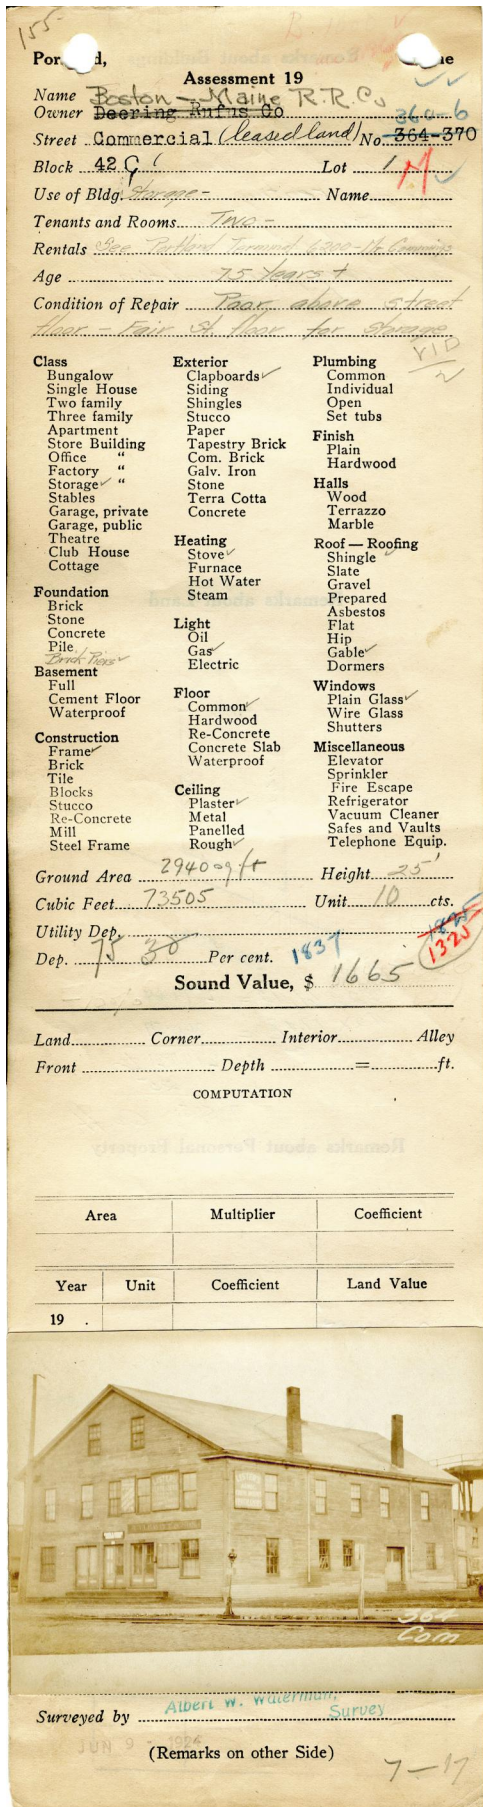 155-
Portland, Maine
Assessment 19
Name Boston – Maine R.R. Co
Owner Deering Rufus Co
360-6
Street Commercial (leased land) No. 364-370
Block 42 G Lot 1 M
Use of Bldg. Storage - Name
Tenants and Rooms Two -
Rentals See Portland Terminal 6200 - Mr Cummings
Age 75 years +
Condition of Repair Poor above street
floor - Fair St floor for storage
Class
Bungalow
Single House
Two family
Three family
Apartment
Store Building
Office "
Factory "
Storage ✓ "
Stables
Garage, private
Garage, public
Theatre
Club House
Cottage
Foundation
Brick
Stone
Concrete
Pile
Brick Piers ✓
Basement
Full
Cement Floor
Waterproof
Construction
Frame ✓
Brick
Tile
Blocks
Stucco
Re-Concrete
Mill
Steel Frame
Exterior
Clapboards ✓
Siding
Shingles
Stucco
Paper
Tapestry Brick
Com. Brick
Galv. Iron
Stone
Terra Cotta
Concrete
Heating
Stove ✓
Furnace
Hot Water
Steam
Light
Oil
Gas ✓
Electric
Floor
Common ✓
Hardwood
Re-Concrete
Concrete Slab
Waterproof
Ceiling
Plaster ✓
Metal
Panelled
Rough ✓
Plumbing
Common
Individual
Open
Set tubs
Finish
Plain
Hardwood
Halls
Wood
Terrazzo
Marble
Roof — Roofing
Shingle ✓
Slate
Gravel
Prepared
Asbestos
Flat
Hip
Gable ✓
Dormers
Windows
Plain Glass ✓
Wire Glass
Shutters
Miscellaneous
Elevator
Sprinkler
Fire Escape
Refrigerator
Vacuum Cleaner
Safes and Vaults
Telephone Equip.
Ground Area 2940 sq ft Height 25'
Cubic Feet 73505 Unit 10 cts.
Utility Dep. 1825
1320
Dep. 75 30 Per cent. 1837
Sound Value, $ 1665
Land Corner Interior Alley
Front Depth = ft.
COMPUTATION
Area Multiplier Coefficient
Year Unit Coefficient Land Value
19 .
364
Com
Albert W. Waterman,
Surveyed by Survey
JUN 9 - 1924
(Remarks on other Side)
7-17